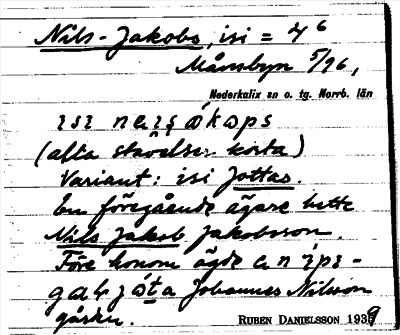 Nils-Jakobs, isi = 4⁶
Månsbyn 5/96,
Nederkalix sn o. tg. Norrb. län
ısı
(alla stavelser korta)
Variant: isi Jottas.
En föregående ägare hette
Nils Jakob Jakobsson.
Före honom ägde
Johannes Nilsson
gården.
RUBEN DANIELSSON 1939